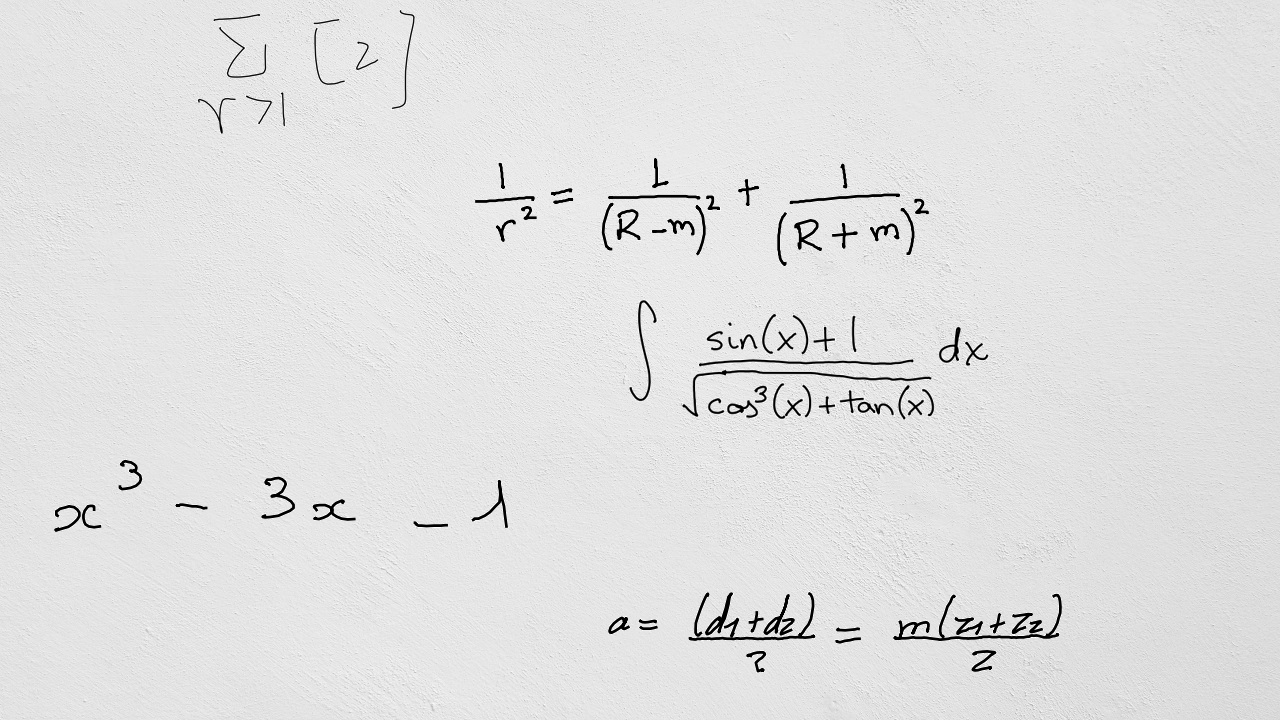 \sum_{r>1} [2]
\frac{1}{r^2} = \frac{1}{(R-m)^2} + \frac{1}{(R+m)^2}
\int \frac{\sin(x)+1}{\sqrt{\cos^3(x)+\tan(x)}} dx
x^3 - 3x - 1
a = \frac{(d_1+d_2)}{2} = \frac{m(z_1+z_2)}{2}